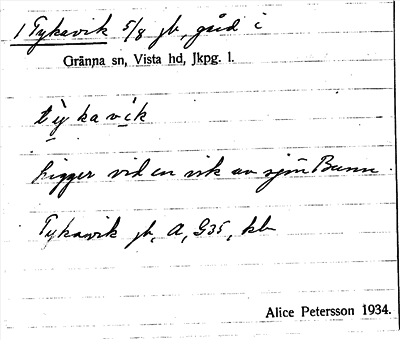 1 Tykavik 5/8 jb, gård i
Gränna sn, Vista hd, Jkpg. l.
tỳkavik
Ligger vid en vik av sjön Bunn.
Tykavik jb, A, G35, kb
Alice Petersson 1934.